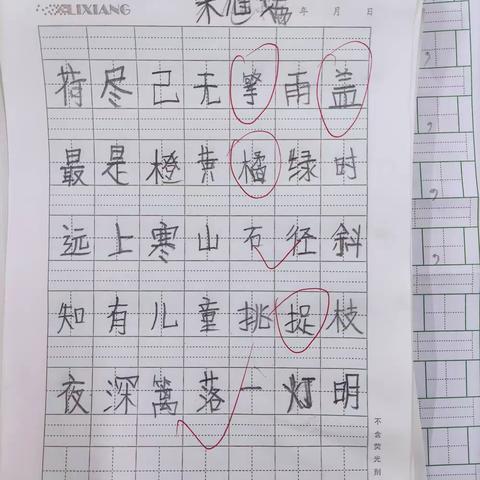 LIXIANG
年 月 日
荷尽己无擎雨盖
最是橙黄橘绿时
远上寒山石径斜
知有儿童挑捉枝
夜深篱落一灯明
不含荧光剂